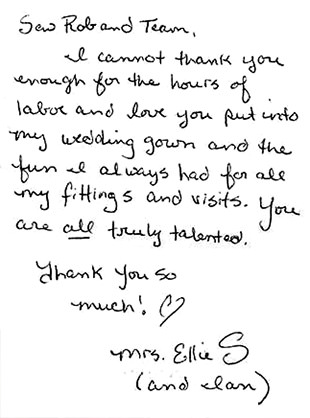 Sew Rob and Team,
I cannot thank you
enough for the hours of
labor and love you put into
my wedding gown and the
fun I always had for all
my fittings and visits. You
are all truly talented.
Thank you so
much! ♡
Mrs. Ellie S
(and clan)